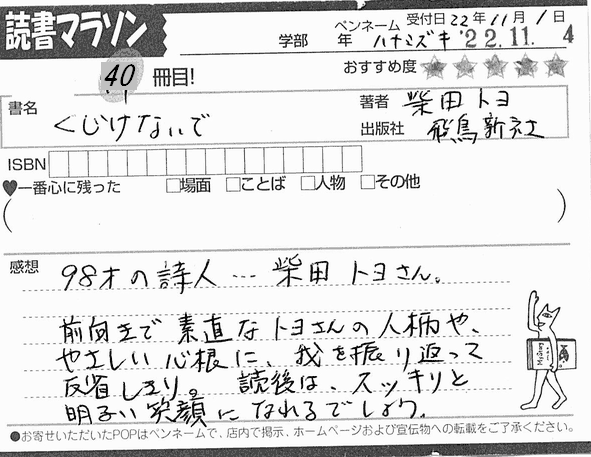 読書マラソン
受付日 22年 11月 1日
学部 年 ペンネーム ハナミズキ '22.11. 4
40 冊目!
おすすめ度 ★★★★★
書名 くじけないで
著者 柴田トヨ
出版社 飛鳥新社
ISBN
♥一番心に残った □場面 □ことば □人物 □その他
( )
感想
98才の詩人…柴田トヨさん。
前向きで素直なトヨさんの人柄や、
やさしい心根に、我を振り返って
反省しきり。 読後は、スッキリと
明るい笑顔になれるでしょう。
●お寄せいただいたPOPはペンネームで、店内で掲示、ホームページおよび宣伝物への転載をご了承ください。